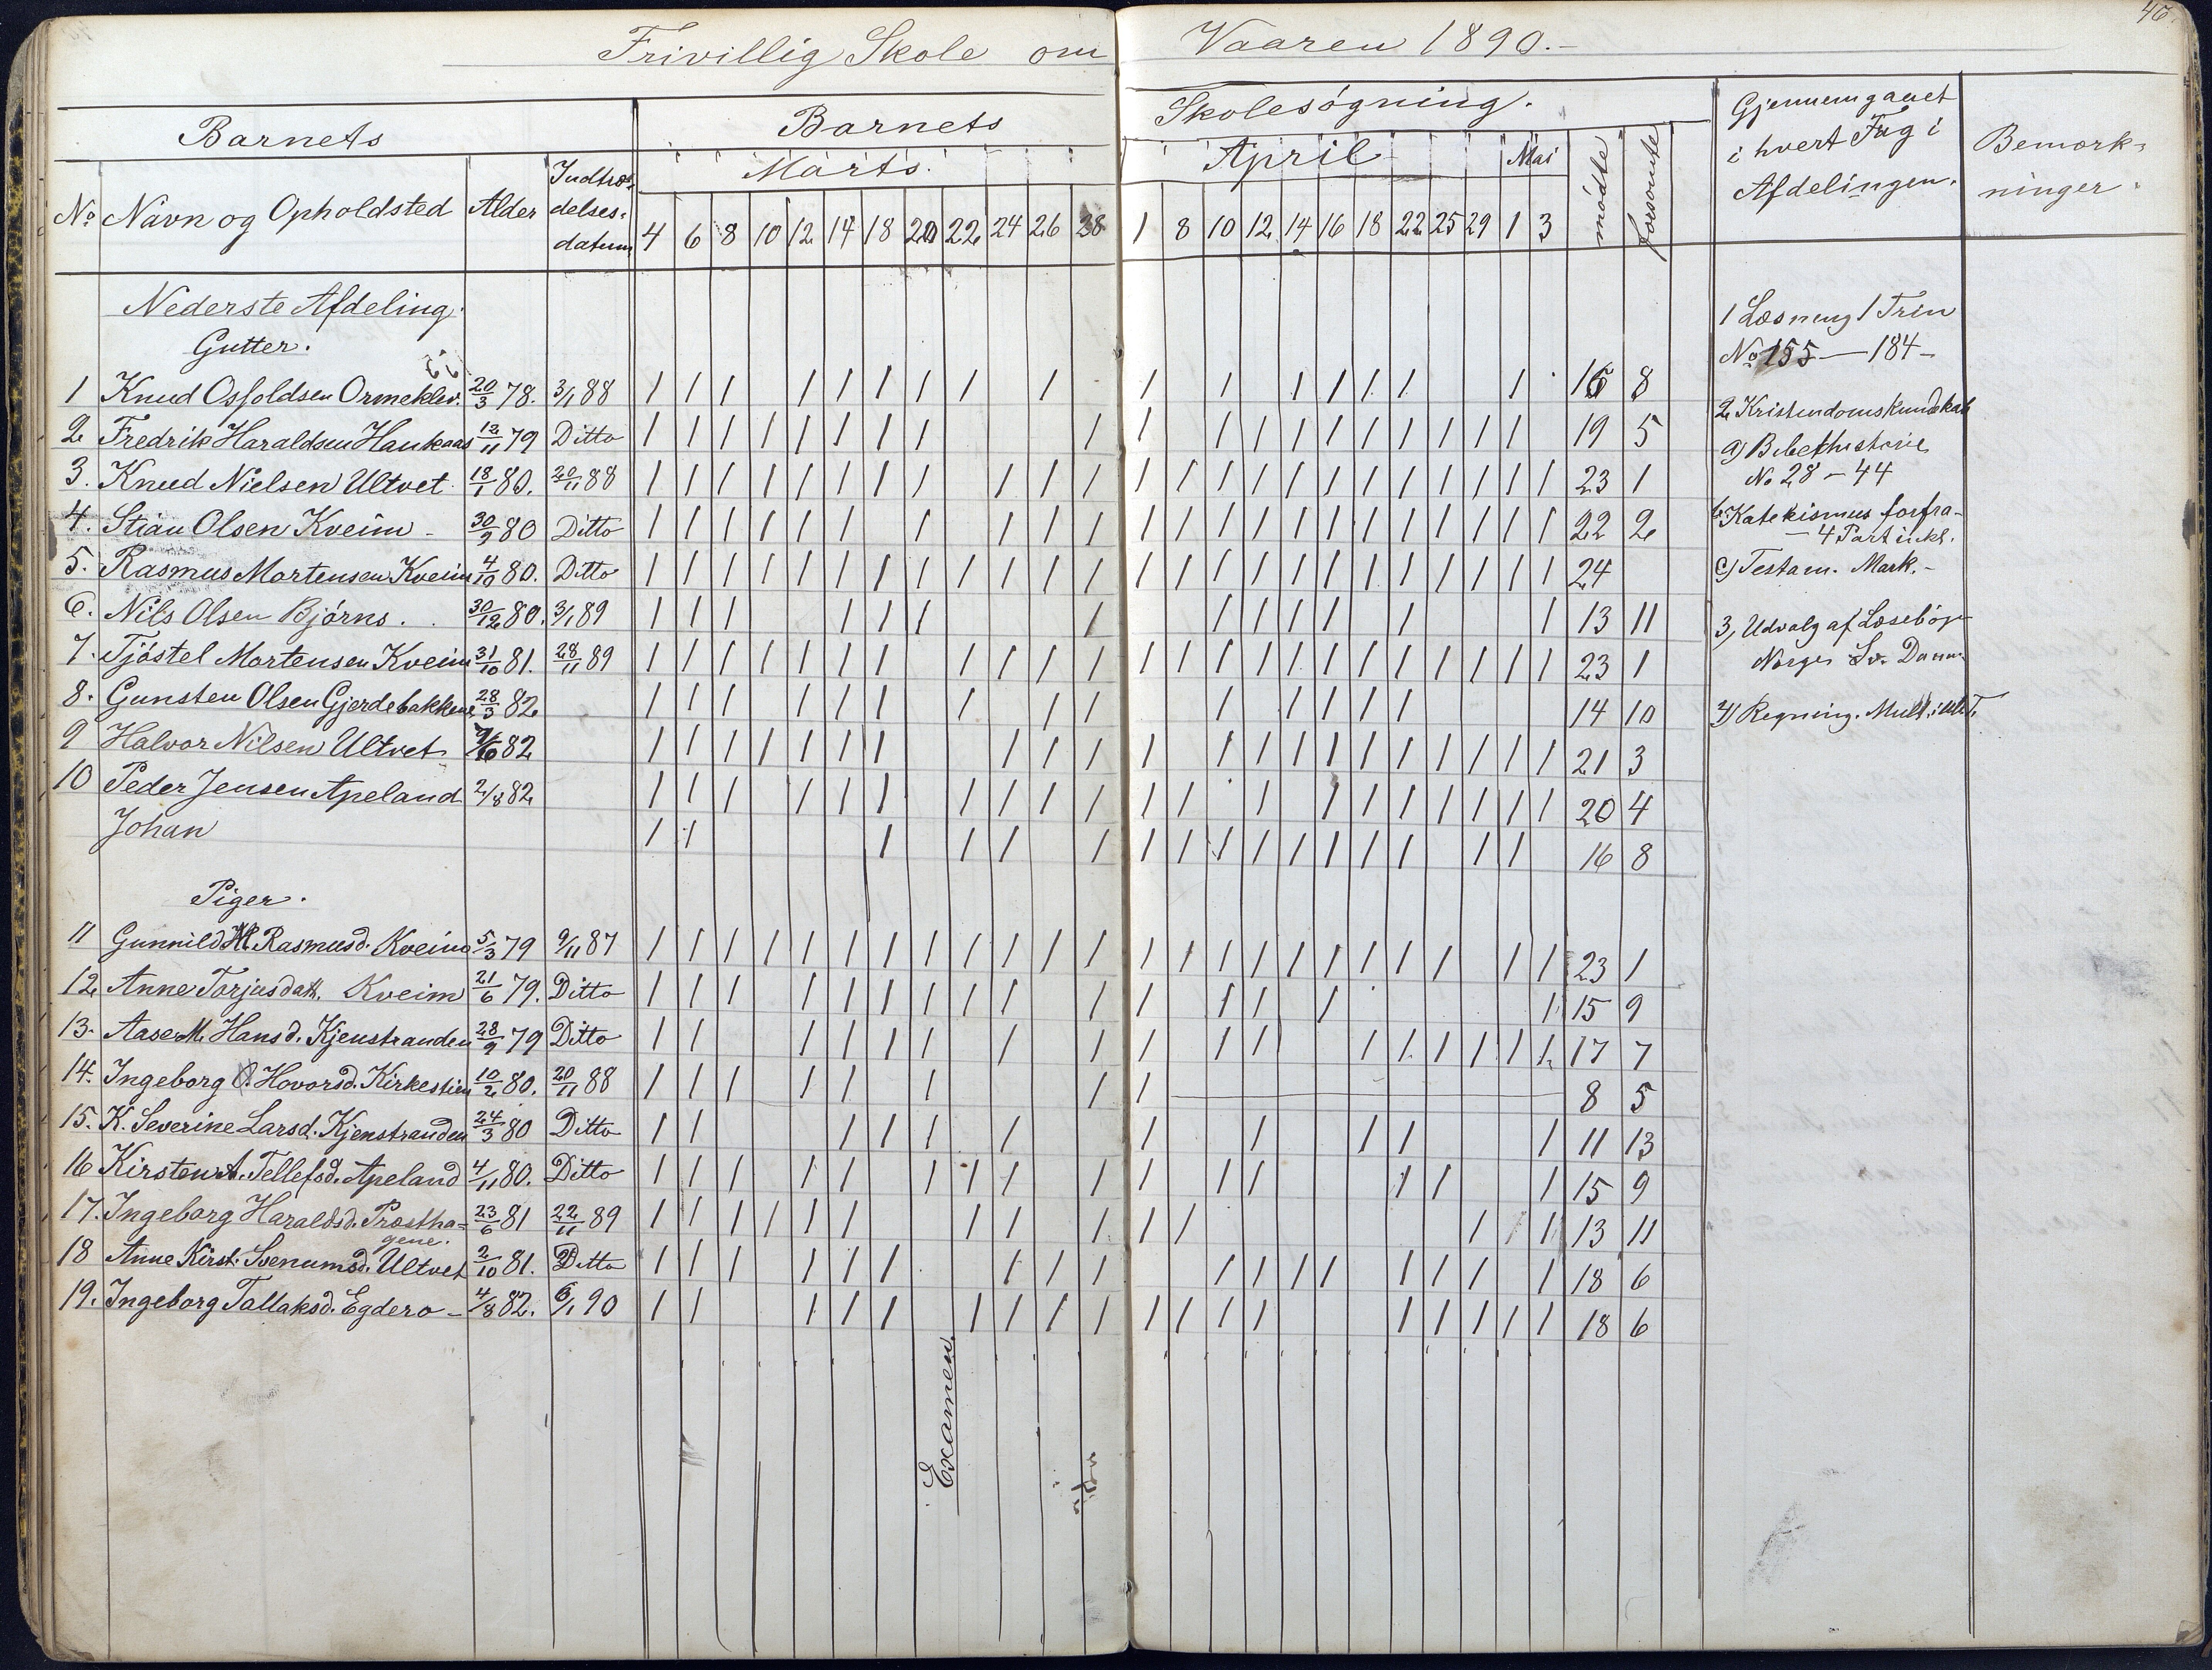 46
Frivillig Skole om Vaaren 1890.-
Barnets
Barnets Skolesøgning.
Gjennemgaaet i hvert Fag i Afdelingen.
Bemærkninger.
No Navn og Opholdsted Alder Indtrædelsesdatum
Marts. April Mai mødte forsømte
4 6 8 10 12 14 18 20 22 24 26 28 1 8 10 12 14 16 18 22 25 29 1 3
Nederste Afdeling.
Gutter.
1 Knud Osfoldsen Ormeklev. 20/3 78. 3/1 88 / / / / / / / / / / / / / / / / / 16 8
2 Fredrik Haraldsen Haukaas 12/11 79 Ditto / / / / / / / / / / / / / / / / / / / 19 5
3. Knud Nielsen Ultvet 18/1 80. 20/11 88 / / / / / / / / / / / / / / / / / / / / / / / 23 1
4. Stian Olsen Kveim - 30/9 80 Ditto / / / / / / / / / / / / / / / / / / / / / / 22 2
5. Rasmus Mortensen Kveim 4/10 80. Ditto / / / / / / / / / / / / / / / / / / / / / / / / 24
6. Nils Olsen Bjørns. 30/12 80. 3/1 89 / / / / / / / / / / / / / 13 11
7. Tjøstel Mortensen Kveim 31/10 81. 28/11 89 / / / / / / / / / / / / / / / / / / / / / / / 23 1
8. Gunsten Olsen Gjerdebakkene 28/3 82 / / / / / / / / / / / / / / 14 10
9 Halvor Nilsen Ultvet 82 / / / / / / / / / / / / / / / / / / / / / 21 3
10 Peder Jensen Apeland 2/8 82 / / / / / / / / / / / / / / / / / / / / 20 4
Johan / / / / / / / / / / / / / / / / 16 8
Piger.
11 Gunnild Rasmusd. Kveim 5/3 79 9/11 87 / / / / / / / / / / / / / / / / / / / / / / / 23 1
12 Anne Torjusdatt. Kveim 21/6 79. Ditto / / / / / / / / / / / / / / / 15 9
13. Aase M. Hansd. Kjenstranden 28/9 79 Ditto / / / / / / / / / / / / / / / / / 17 7
14. Ingeborg O. Hovorsd. Kirkestien 10/2 80. 20/11 88 / / / / / / / / 8 5
15. K. Severine Larsd. Kjenstranden 24/3 80 Ditto / / / / / / / / / / 11 13
16 Kirsten A. Tellefsd. Apeland 4/11 80. Ditto / / / / / / / / / / / / / / / 15 9
17. Ingeborg Haraldsd. Præstha= 23/6 81 22/11 89 / / / / / / / / / / / / / / 13 11
gene.
18 Anne Kirst. Svenumsd. Ultvet 2/10 81. Ditto / / / / / / / / / / / / / / / / / 18 6
19. Ingeborg Tallaksd. Egdero - 4/8 82. 6/1 90 / / / / / / / / / / / / / / / / / / 18 6
Examen.
1 Læsning 1 Trin
No 155 — 184 -
2 Kristendomskundskab
a) Bibelhistorie
No 28 - 44
b. Katekismus forfra
- 4 Part inkl.
c) Testam. Mark. -
3, Udvalg af Læsebog
Norge Sv. Danm.
4) Regning. Mult.